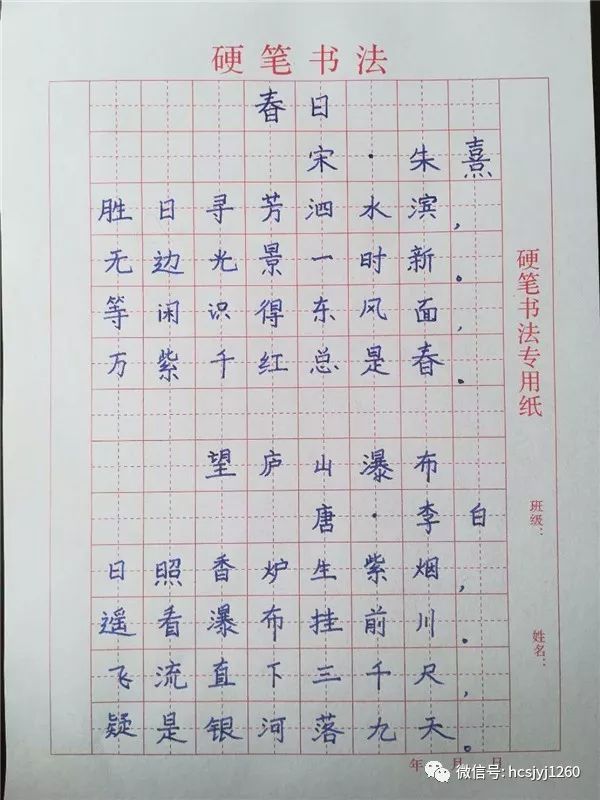 硬笔书法
春日
宋·朱熹
胜日寻芳泗水滨，
无边光景一时新。
等闲识得东风面，
万紫千红总是春。
望庐山瀑布
唐·李白
日照香炉生紫烟，
遥看瀑布挂前川。
飞流直下三千尺，
疑是银河落九天。
硬笔书法专用纸
班级：
姓名：
年 月 日
微信号: hcsjyj1260